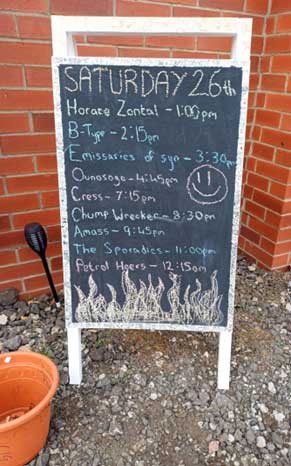 SATURDAY 26th
Horace Zontal - 1:00pm
B-Type - 2:15pm
Emissaries of syn - 3:30pm
Ounosage - 4:45pm
Cress - 7:15pm
Chump Wrecker - 8:30pm
Amass - 9:45pm
The Sporadies - 11:00pm
Petrol Hoers - 12:15am